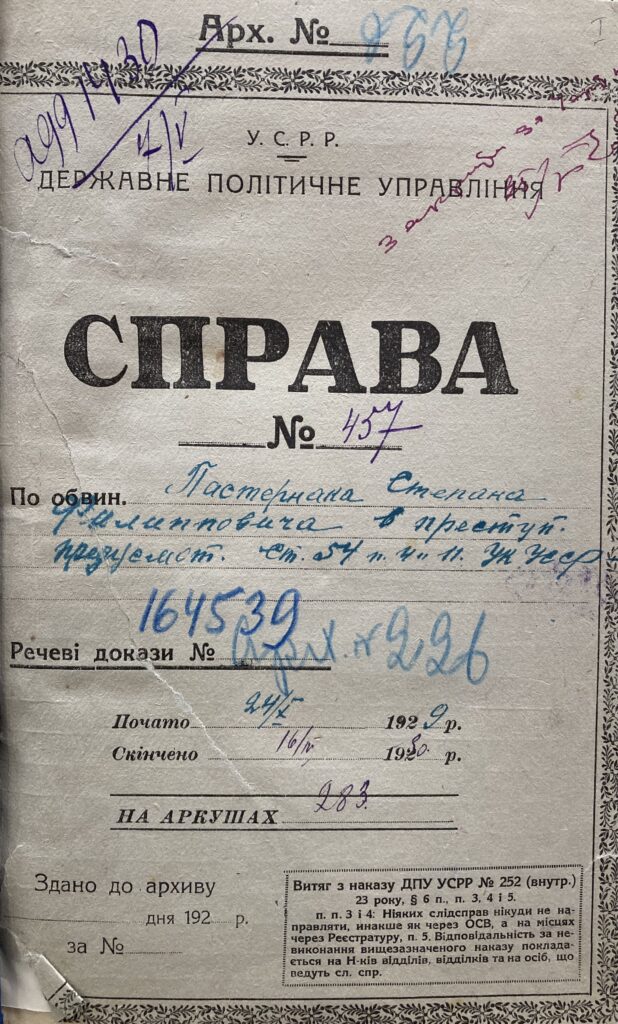 Арх. №
У. С. Р. Р.
ДЕРЖАВНЕ ПОЛІТИЧНЕ УПРАВЛІННЯ
СПРАВА
№ 457
По обвин. Пастернака Степана
Филипповича в преступ.
предусмот. ст. 54 п. 4 и 11. УК УССР
164539
Речеві докази № Арх. № 226
Почато 24/X 1929 р.
Скінчено 1930. р.
НА АРКУШАХ 283.
Здано до архиву
дня 192 р.
за №
Витяг з наказу ДПУ УСРР № 252 (внутр.)
23 року, § 6 п., п. 3, 4 і 5.
п. п. 3 і 4: Ніяких слідсправ нікуди не на-
правляти, инакше як через ОСВ, а на місцях
через Реєстратуру, п. 5. Відповідальність за не-
виконання вищезазначеного наказу поклада-
ється на Н-ків відділів, відділків та на осіб, що
ведуть сл. спр.